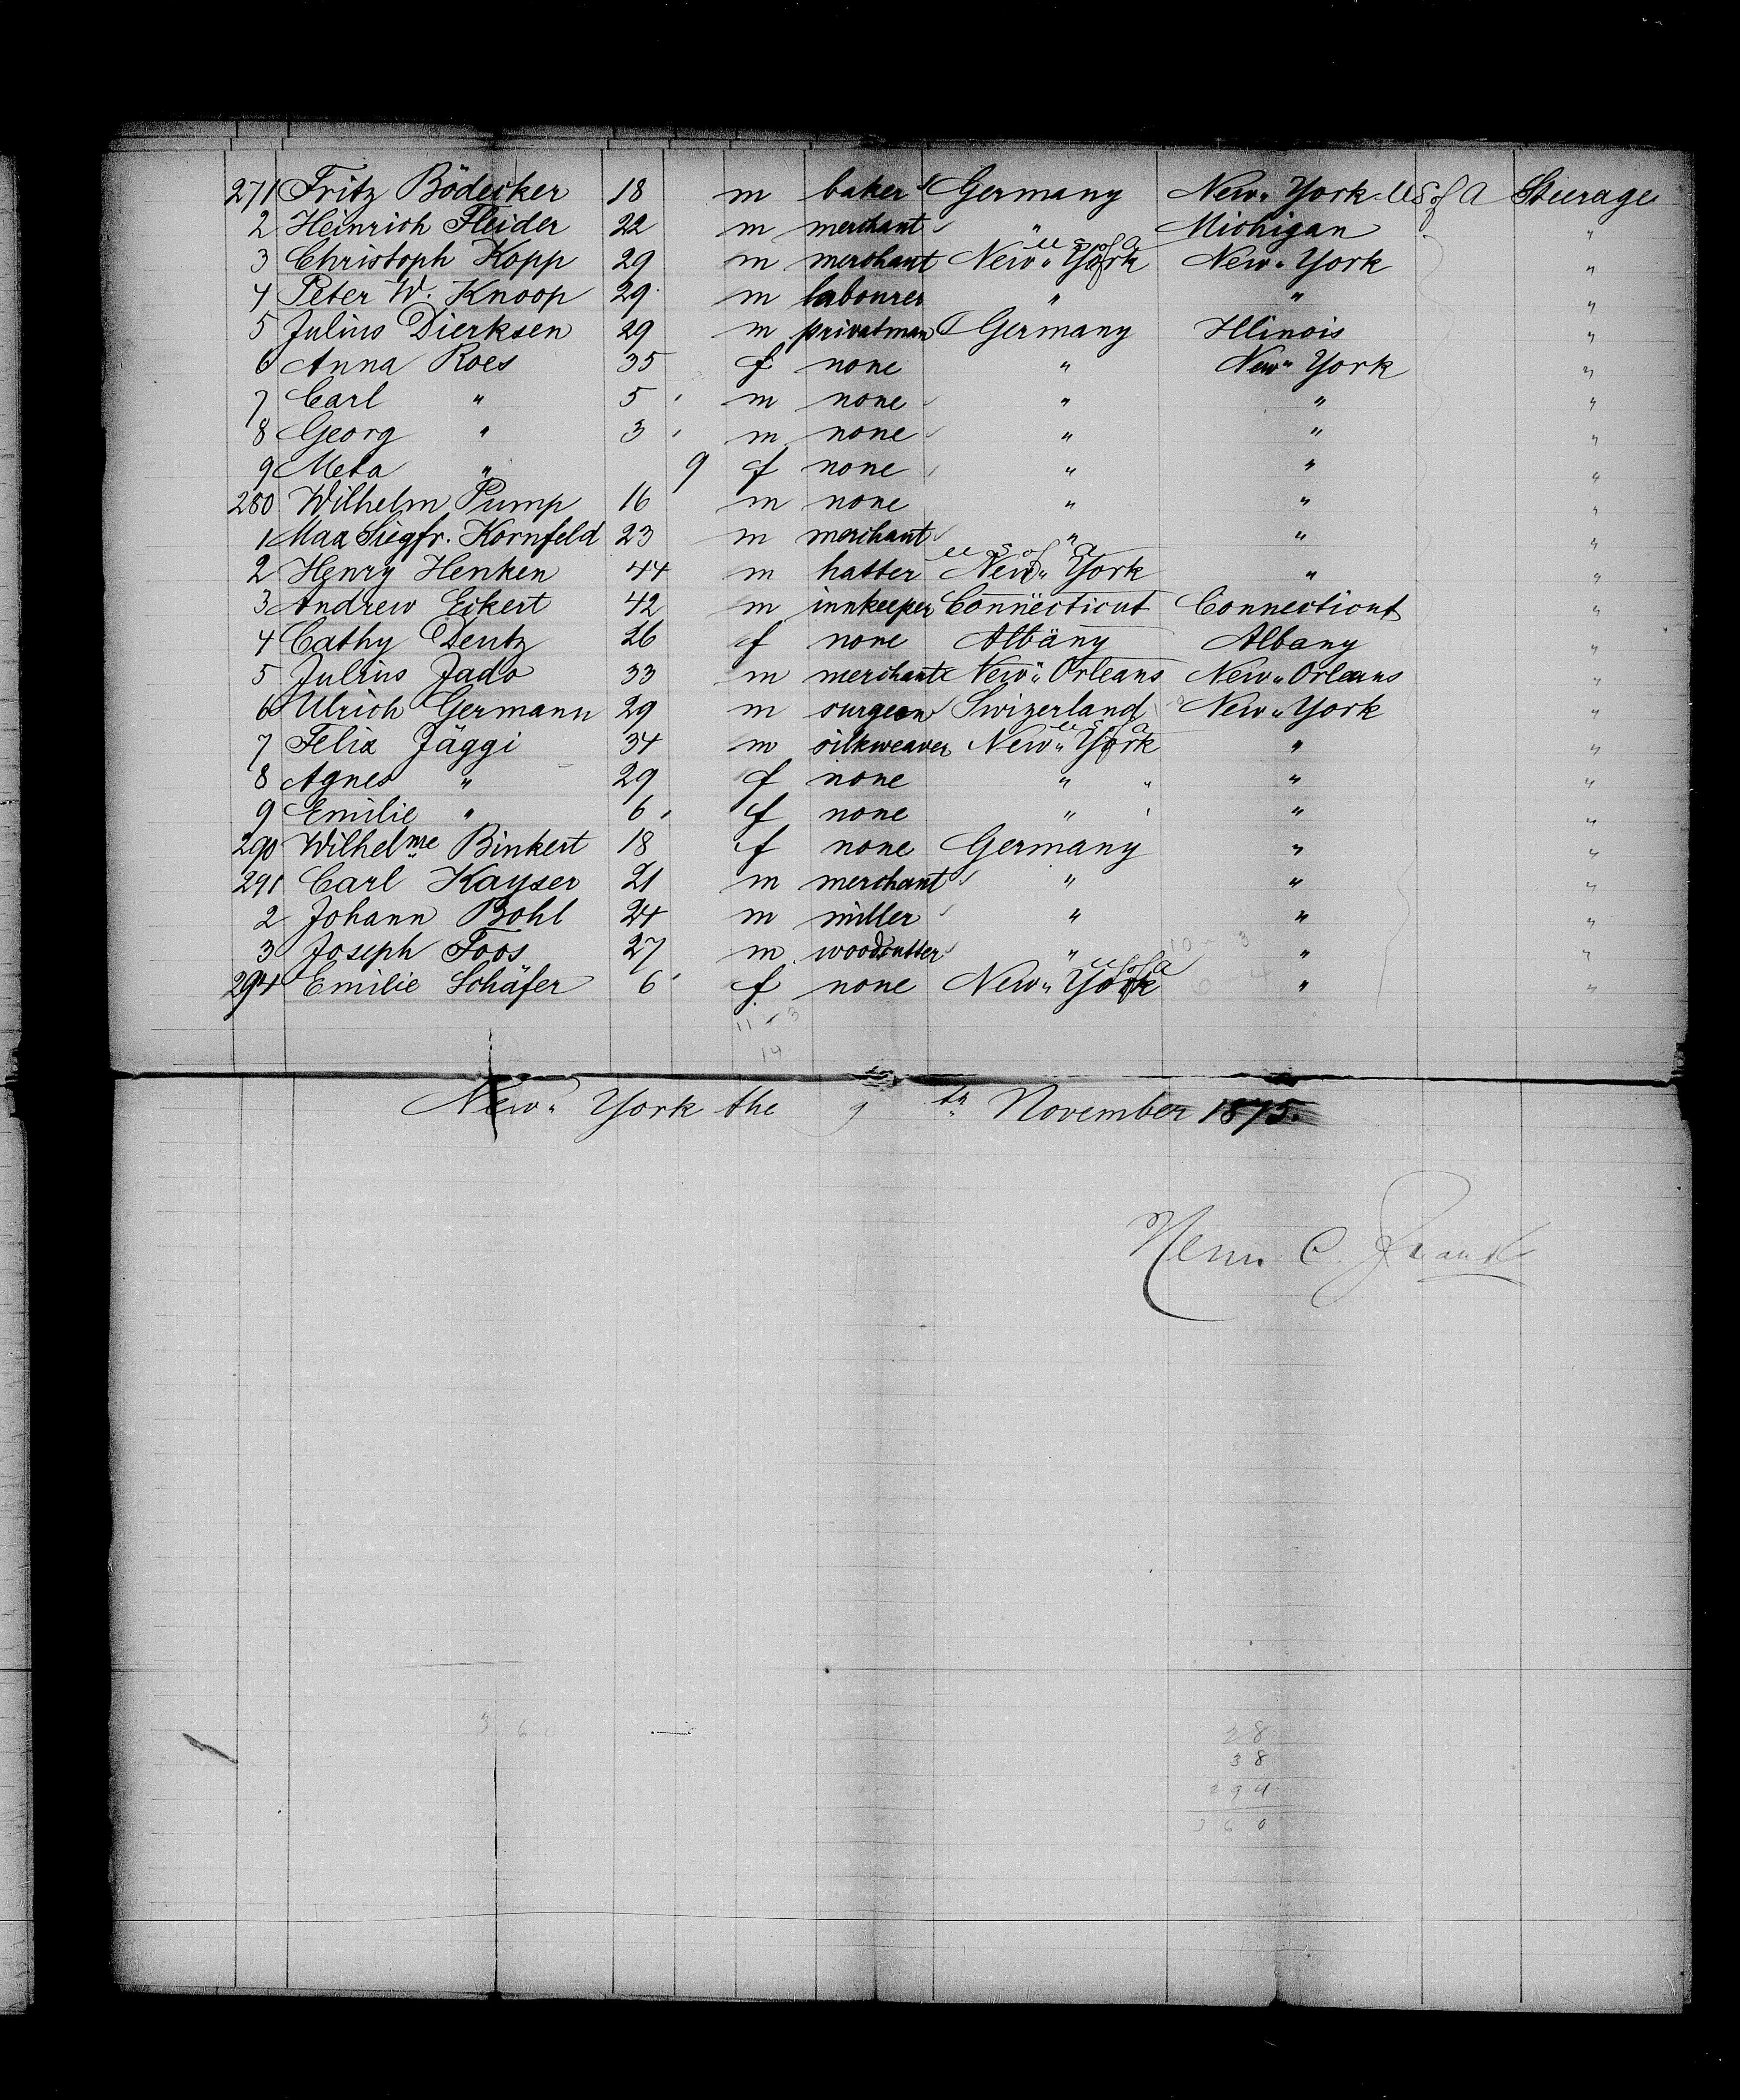 271 Fritz Bödecker 18 m baker Germany New York U S of A Steerage
2 Heinrich Fleider 22 m merchant " Michigan "
3 Christoph Kopp 29 m merchant New York U S of A New York "
4 Peter W. Knoop 29 m labourer " " "
5 Julius Dierksen 29 m privatman Germany Illinois "
6 Anna Roes 35 f none " New York "
7 Carl " 5 m none " " "
8 Georg " 3 m none " " "
9 Meta " 9 f none " " "
280 Wilhelm Pump 16 m none " " "
1 Max Siegfr. Kornfeld 23 m merchant " " "
2 Henry Henken 44 m hatter New York U S of A " "
3 Andrew Eckert 42 m innkeeper Connecticut Connecticut "
4 Cathy Dentz 26 f none Albany Albany "
5 Julius Jado 33 m merchant New Orleans New Orleans "
6 Ulrich Germann 29 m surgeon Swizerland New York "
7 Felix Jäggi 34 m silkweaver New York U S of A " "
8 Agnes " 29 f none " " " "
9 Emilie " 6 f none " " "
290 Wilhelmne Binkert 18 f none Germany " "
291 Carl Kayser 21 m merchant " " "
2 Johann Bohl 24 m miller " " "
3 Joseph Foos 27 m woodcutter " " "
294 Emilie Schäfer 6 f none New York U S of A " "
11 - 3
14
New York the 9 th November 1875.
Herm. C.
360
28
38
294
360